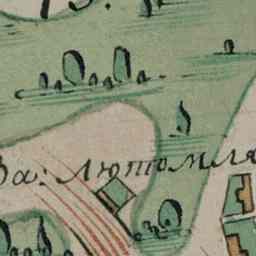 за: лютомля